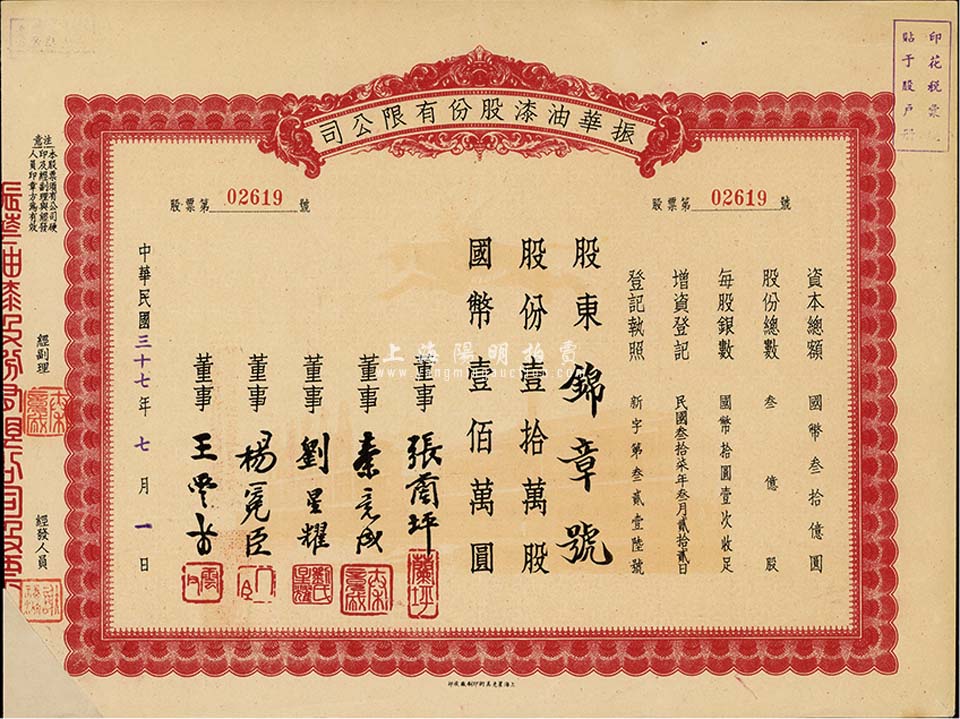 振華油漆股份有限公司
股票第 02619 號
股票第 02619 號
資本總額 國幣叁拾億圓
股份總數 叁億股
每股銀數 國幣拾圓壹次收足
增資登記 民國叁拾柒年叁月貳拾貳日
登記執照 新字第叁貳壹陸號
股東 錦章號
股份壹拾萬股
國幣壹佰萬圓
董事 張蘭坪
董事
董事 劉星耀
董事 楊冕臣
董事 王雲甫
中華民國三十七年七月一日
注意
本股票須有公司硬
印及經副理與經發
人員印章方為有效
經副理
經發人員
印花稅票
貼于股戶
上海陽明拍賣